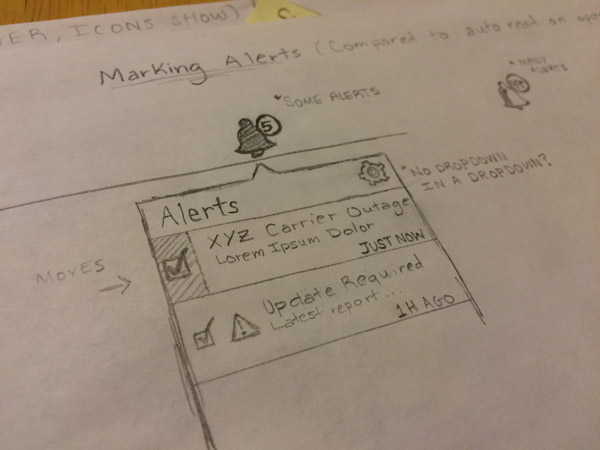 ER, ICONS SHOW)
C.
Marking Alerts (Compared to auto read on open
SOME ALERTS
MANY
ALERTS
5
NO DROPDOWN
IN A DROPDOWN?
Alerts
XYZ Carrier Outage
Lorem Ipsum Dolor
JUST NOW
MOVES
Update Required
Latest report...
1H AGO